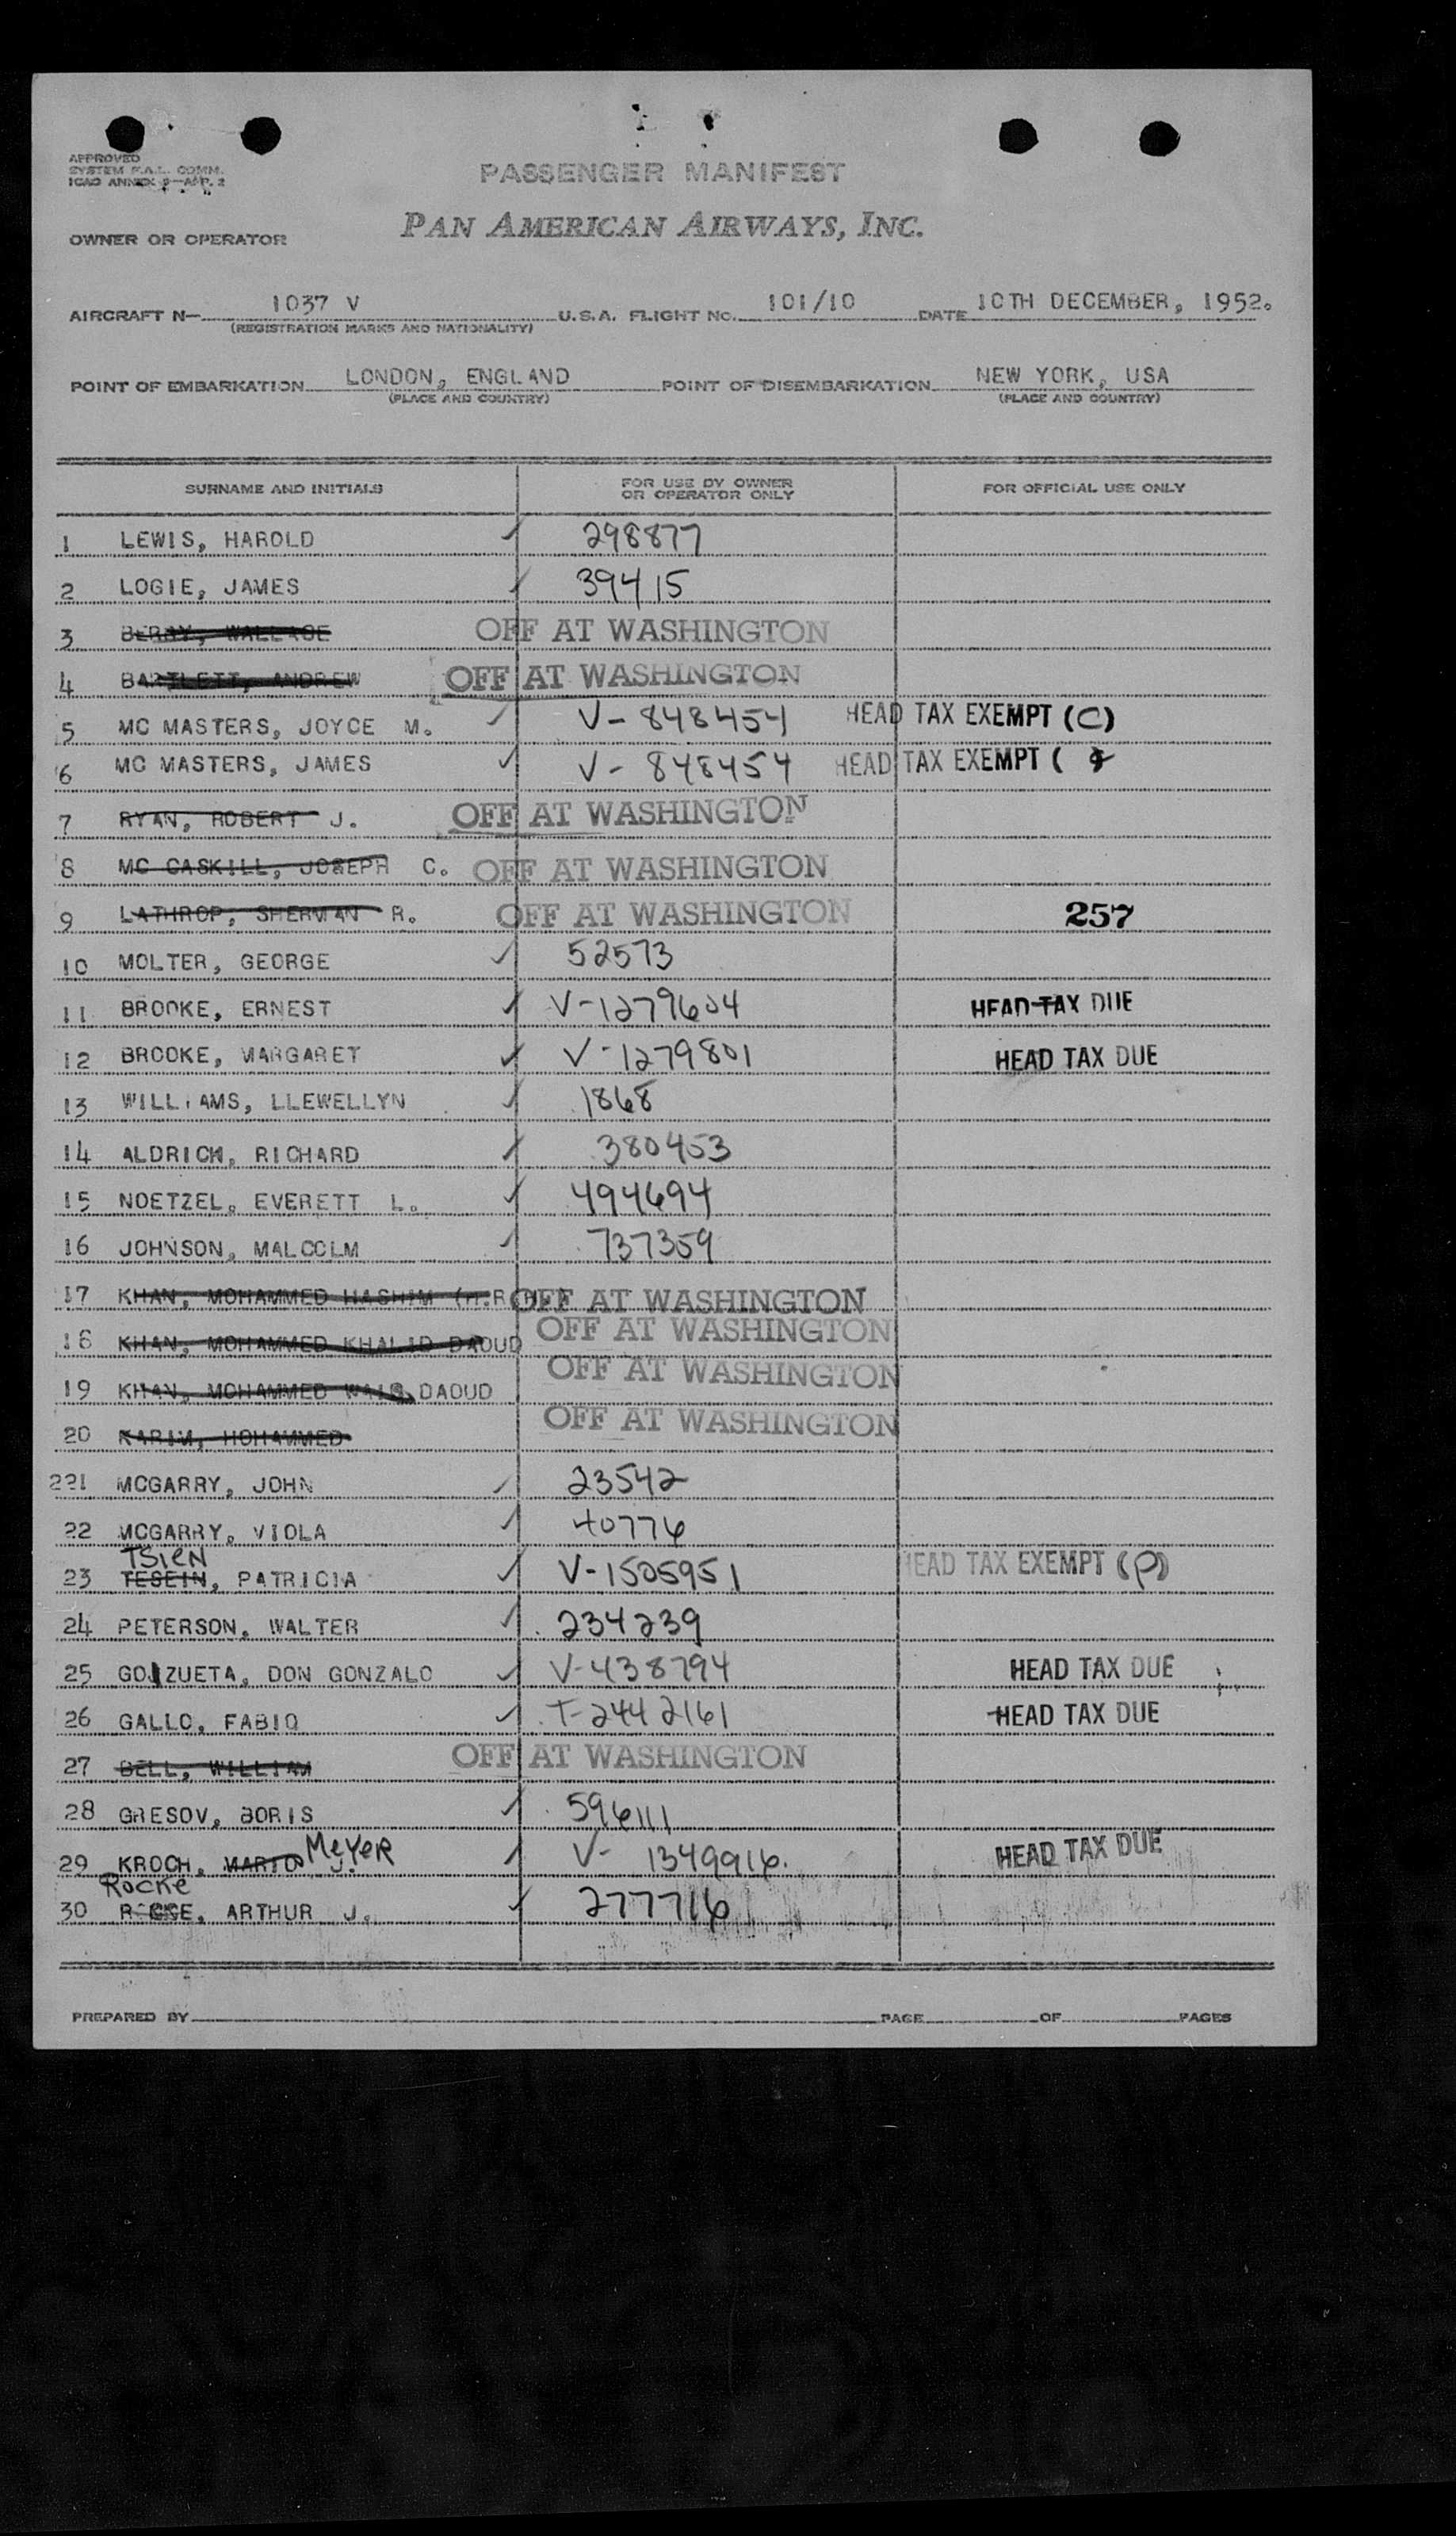 APPROVED
SYSTEM F.A.L. COMM.
ICAO ANNEX 9—APP. 2
PASSENGER MANIFEST
OWNER OR OPERATOR PAN AMERICAN AIRWAYS, INC.
AIRCRAFT N— 1037 V U.S.A. FLIGHT NO. 101/10 DATE 10TH DECEMBER, 1952.
(REGISTRATION MARKS AND NATIONALITY)
POINT OF EMBARKATION LONDON, ENGLAND POINT OF DISEMBARKATION NEW YORK, USA
(PLACE AND COUNTRY) (PLACE AND COUNTRY)
SURNAME AND INITIALS FOR USE BY OWNER OR OPERATOR ONLY FOR OFFICIAL USE ONLY
1 LEWIS, HAROLD 298877
2 LOGIE, JAMES 39415
3 BERRY, WALLACE OFF AT WASHINGTON
4 BARTLETT, ANDREW OFF AT WASHINGTON
5 MC MASTERS, JOYCE M. V-848454 HEAD TAX EXEMPT (C)
6 MC MASTERS, JAMES V-848454 HEAD TAX EXEMPT (
7 RYAN, ROBERT J. OFF AT WASHINGTON
8 MC CASKILL, JOSEPH C. OFF AT WASHINGTON
9 LATHROP, SHERMAN R. OFF AT WASHINGTON 257
10 MOLTER, GEORGE 52573
11 BROOKE, ERNEST V-1279604 HEAD TAX DUE
12 BROOKE, MARGARET V-1279801 HEAD TAX DUE
13 WILLIAMS, LLEWELLYN 1868
14 ALDRICH, RICHARD 380453
15 NOETZEL, EVERETT L. 494694
16 JOHNSON, MALCOLM 737359
17 KHAN, MOHAMMED HASHIM OFF AT WASHINGTON
18 KHAN, MOHAMMED KHALID DAOUD OFF AT WASHINGTON
19 KHAN, MOHAMMED WAIS DAOUD OFF AT WASHINGTON
20 KARIM, MOHAMMED OFF AT WASHINGTON
221 MCGARRY, JOHN 23542
22 MCGARRY, VIOLA 40776
TSIEN
23 TESEIN, PATRICIA V-1505951 HEAD TAX EXEMPT (P)
24 PETERSON, WALTER 234239
25 GOIZUETA, DON GONZALO V-438794 HEAD TAX DUE
26 GALLO, FABIO T-2442161 HEAD TAX DUE
27 BELL, WILLIAM OFF AT WASHINGTON
28 GRESOV, BORIS 596111
29 KROCH, MARTO J. MEYER V-1349916. HEAD TAX DUE
Rocke
30 ARTHUR J. 277716
PREPARED BY PAGE OF PAGES